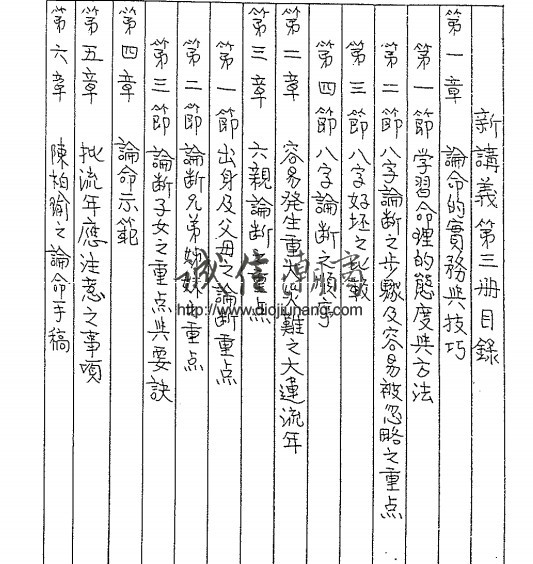 新講義第三册目錄
第一章 論命的實務與技巧
第一節 學習命理的態度與方法
第二節 八字論斷之步驟及容易被忽略之重点
第三節 八字好坏之比較
第四節 八字論斷之順序
第二章 容易發生重大災難之大運流年
第三章 六親論斷之重点
第一節 出身及父母之論斷重点
第二節 論斷兄弟姊妹之重点
第三節 論斷子女之重点與要訣
第四章 論命示範
第五章 批流年應注意之事項
第六章 陳柏瑜之論命手稿
誠信
http://www.diojiuhang.com